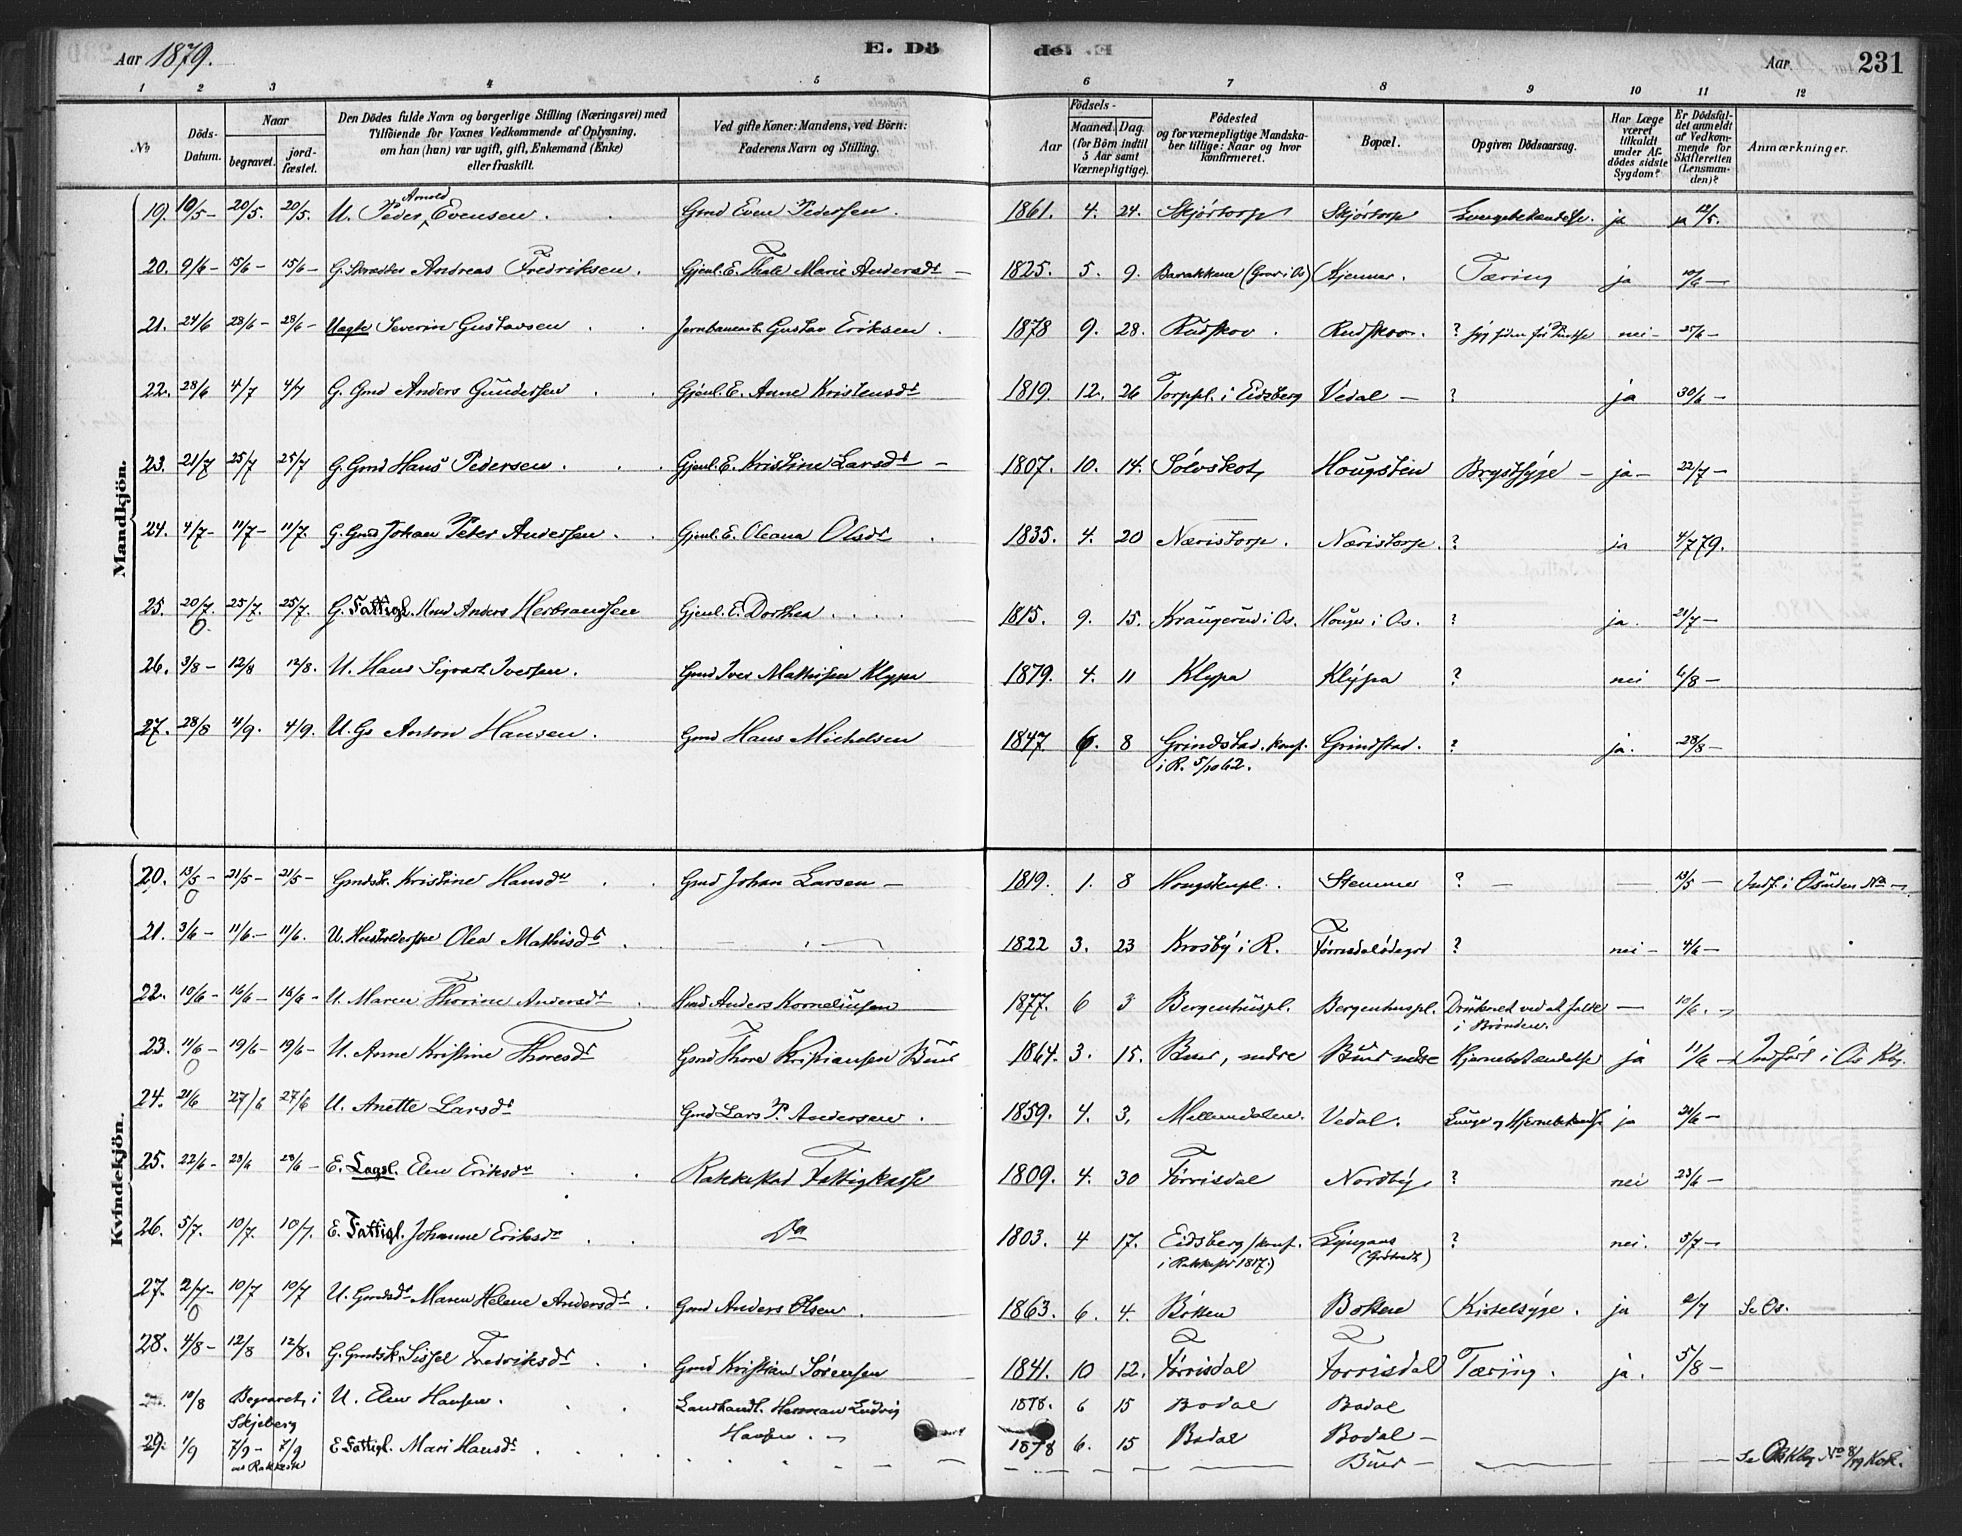 Aar 1879.
E. Dö
de. E
Aar
231
1 2 3 4 5 6 7 8 9 10 11 12
No
Döds-Datum.
Naar
begravet.
jord-fæstet.
Den Dödes fulde Navn og borgerlige Stilling (Næringsvei) med
Tilföiende for Voxnes Vedkommende af Oplysning,
om han (hun) var ugift, gift, Enkemand (Enke)
eller fraskilt.
Ved gifte Koner: Mandens, ved Börn:
Faderens Navn og Stilling.
Födsels-
Aar
Maaned.
Dag.
(for Börn indtil
5 Aar samt
Værnepligtige).
Födested
og for værnepligtige Mandska-
ber tillige: Naar og hvor
konfirmeret.
Bopæl.
Opgiven Dödsaarsag.
Har Læge
været
tilkaldt
under Af-
dödes sidste
Sygdom?
Er Dödsfal-
det anmeldt
af Vedkom-
mende for
Skifteretten
(Lensman-
den)?
Anmærkninger.
Mandkjön.
19. 10/5 - 20/5. 20/5. U. Peder Arnold Evensen. Gmd Even Pedersen. 1861. 4. 24. Skjørtorp Skjørtorp Lungebetændelse. ja ja 12/5.
20. 9/6 - 15/6 - 15/6 - G. Skrædder Andreas Fredriksen. Gjenl. E. Thale Marie Andersdt - 1825. 5. 9. Barakkene (Gaar i Os) Kjenner. Tæring ja 10/6 -
21. 24/6 28/6 - 28/6 - Uægte Severin Gustavsen Jernbanearb. Gustav Eriksen. 1878 9. 28. Rudskov. Rudskov. ? syg siden før Fødsel nei - 25/6 -
22. 28/6 4/7 4/7 G. Gmd Anders Gundersen Gjenl. E. Anne Kristensdt 1819. 12. 26 Torppl. i Eidsberg Vedal - ? ja 30/6 -
23. 21/7 25/7 25/7 G. Gmd Hans Pedersen. Gjenl. E. Kristine Larsdt - 1807. 10. 14. Sølvskot, Hougstein Brystsyge - ja - 22/7 -
24. 4/7 - 11/7 - 11/7. G. Gmd Johan Peter Andersen. Gjenl. E. Oleana Olsdt 1835. 4. 20 Næristorp. Næristorp. ? ja 4/7 79.
25. 20/7. 0. 25/7. 25/7. G. Fattigl. Hmd Anders Herbrandsen Gjenl. E. Dorthea 1815. 9. 15. Kraugerud i Os. Houger i Os. ? ja. 21/7 -
26. 3/8 - 12/8 12/8. U. Hans Sigvart Iversen. Gmd Iver Mathisen Klypa 1879. 4. 11 Klypa Klypa ? nei 6/8 -
27. 28/8 4/9. 4/9. U. Gs Anton Hansen. Gmd Hans Michelsen 1847 6. 8 Grindstad. konf. Grindstad. ? ja. 28/8 -
i R. 5/10 62.
Kvindekjön.
20. 13/5 - 0 21/5 - 21/5 - Gmdsk. Kristine Hansdr Gmd Johan Larsen - 1819. 1. 8 Hougstenpl. Stemmer ? - - 13/5 - Indf. i Os uden No -
21. 3/6 - 11/6. - 11/6. U. Husholderske Olea Mathisdt 1822 3. 23 Krosby i R. Førrisdalødegrd ? nei - 4/6 -
22. 10/6 - 16/6 - 16/6 - U. Maren Thorine Andersdt Hmd Anders Korneliusen 1877. 6 3 Bergenhuspl. Bergenhuspl. Druknet ved at falde - 10/6. -
i Brønden.
23. 11/6 - 0 19/6 - 19/6 - U. Anne Kristine Thoresdt Gmd Thore Kristiansen Buer 1864. 3. 15. Buer, søndre Buer søndre Hjernebetændelse ja 11/6 - Indført i Os Kbg.
24. 21/6 27/6 27/6 U. Anette Larsdt Gmd Lars P. Andersen. 1859. 4. 3. Mellemdalen. Vedal. Lunge og Hjernebetændelse ja 21/6 -
25. 22/6 - 28/6 28/6 - E. Lægsl. Elen Eriksdr Rakkestad Fattigkasse 1809. 4. 30 Førrisdal Nordby ? nei 23/6 -
26. 5/7. 10/7. 10/7. E. Fattigl. Johanne Eriksdr Do 1803. 4 17. Eidsberg (konf. ? nei. 5/7 -
i Rakkestad 1817.)
27. 2/7 - 0 10/7 10/7 U. Gmdsdt Maren Helene Andersdt. Gmd Anders Olsen. 1863. 6. 4. Bøkken Bøkken Kirtelsyge. ja 2/7 Se Os.
28. 4/8 - 12/8 12/8. G. Gmdsk. Sissel Fredriksdt Gmd Kristian Sørensen 1841. 10 12. Førrisdal Førrisdal Tæring. ja. 5/8 -
10/8 Begravet i Skjeberg U. Elen Hansen. Landhandl. Herman Ludvig Hansen. - 1878. 6 15 Bodal Bodal
29. 1/9 7/9 - 7/9 ved Rakkestad E. Fattigl. Mari Hansdt. 1878 6. 15 Bodal Bodal -
Buer - Se Os Kbg No 8/79 KoK.